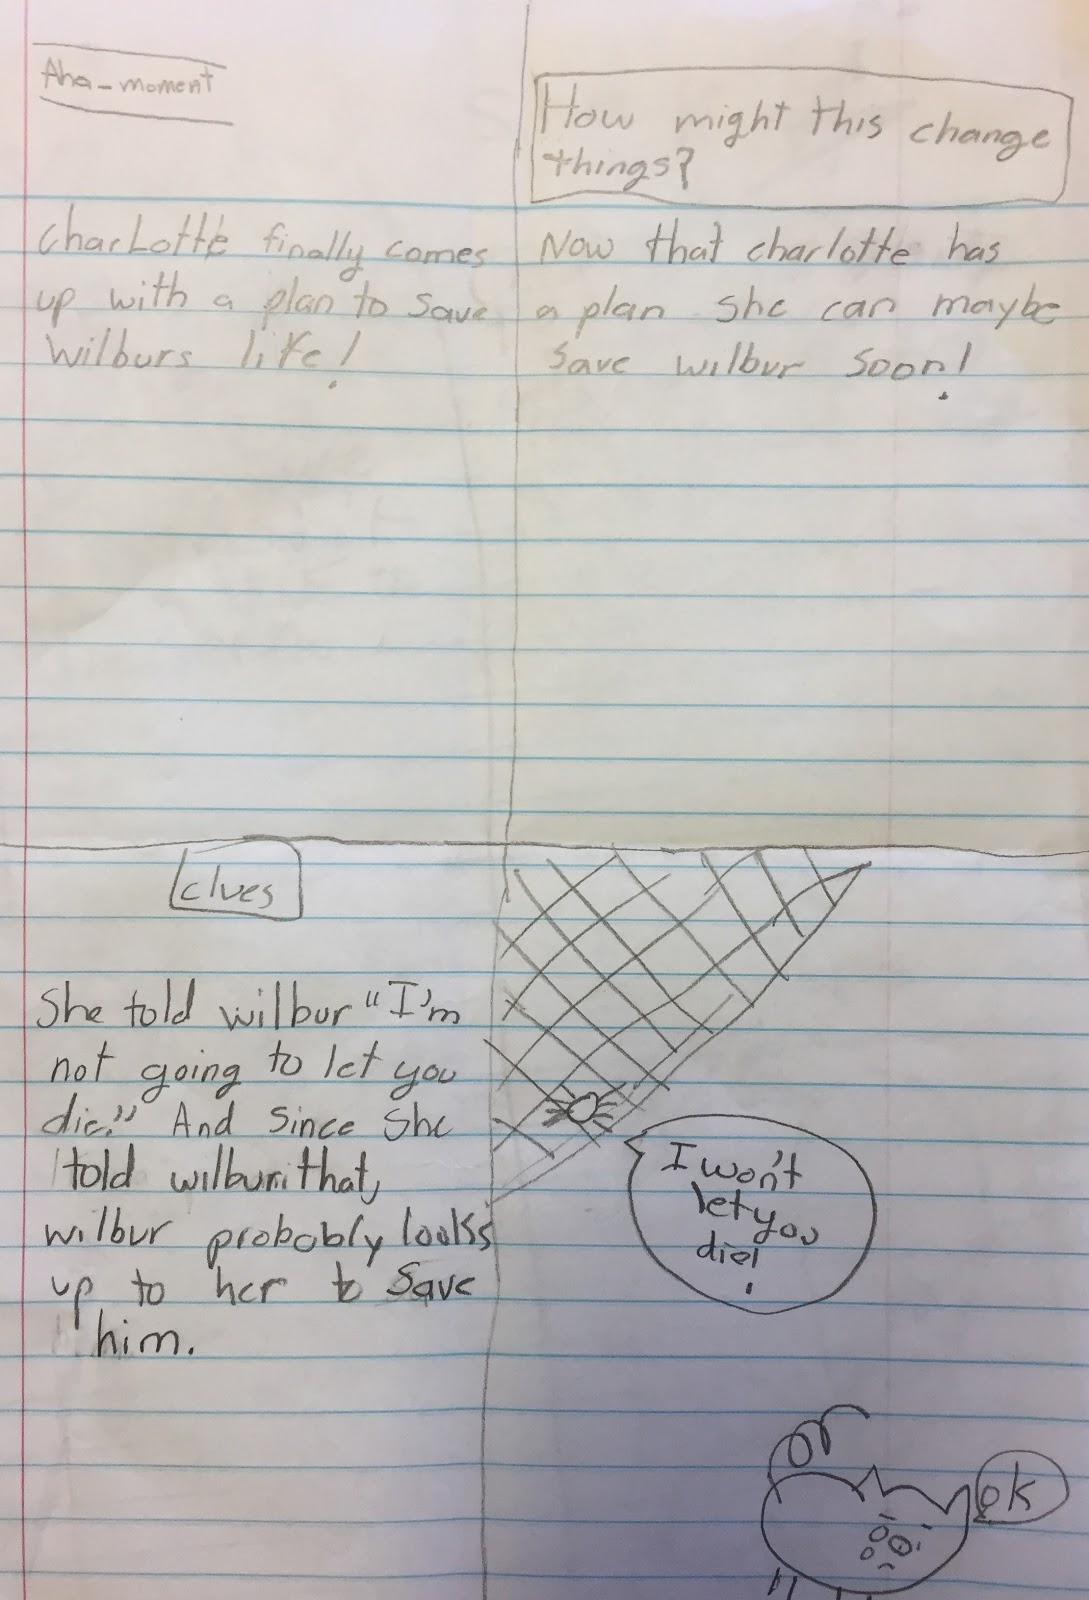 Aha-moment
Charlotte finally comes
up with a plan to save
Wilburs life!
How might this change
things?
Now that charlotte has
a plan she can maybe
save wilbur soon!
clues
She told wilbur "I'm
not going to let you
die." And since she
told wilbur that,
wilbur probably looks
up to her to save
him.
I won't
let you
die!
ok